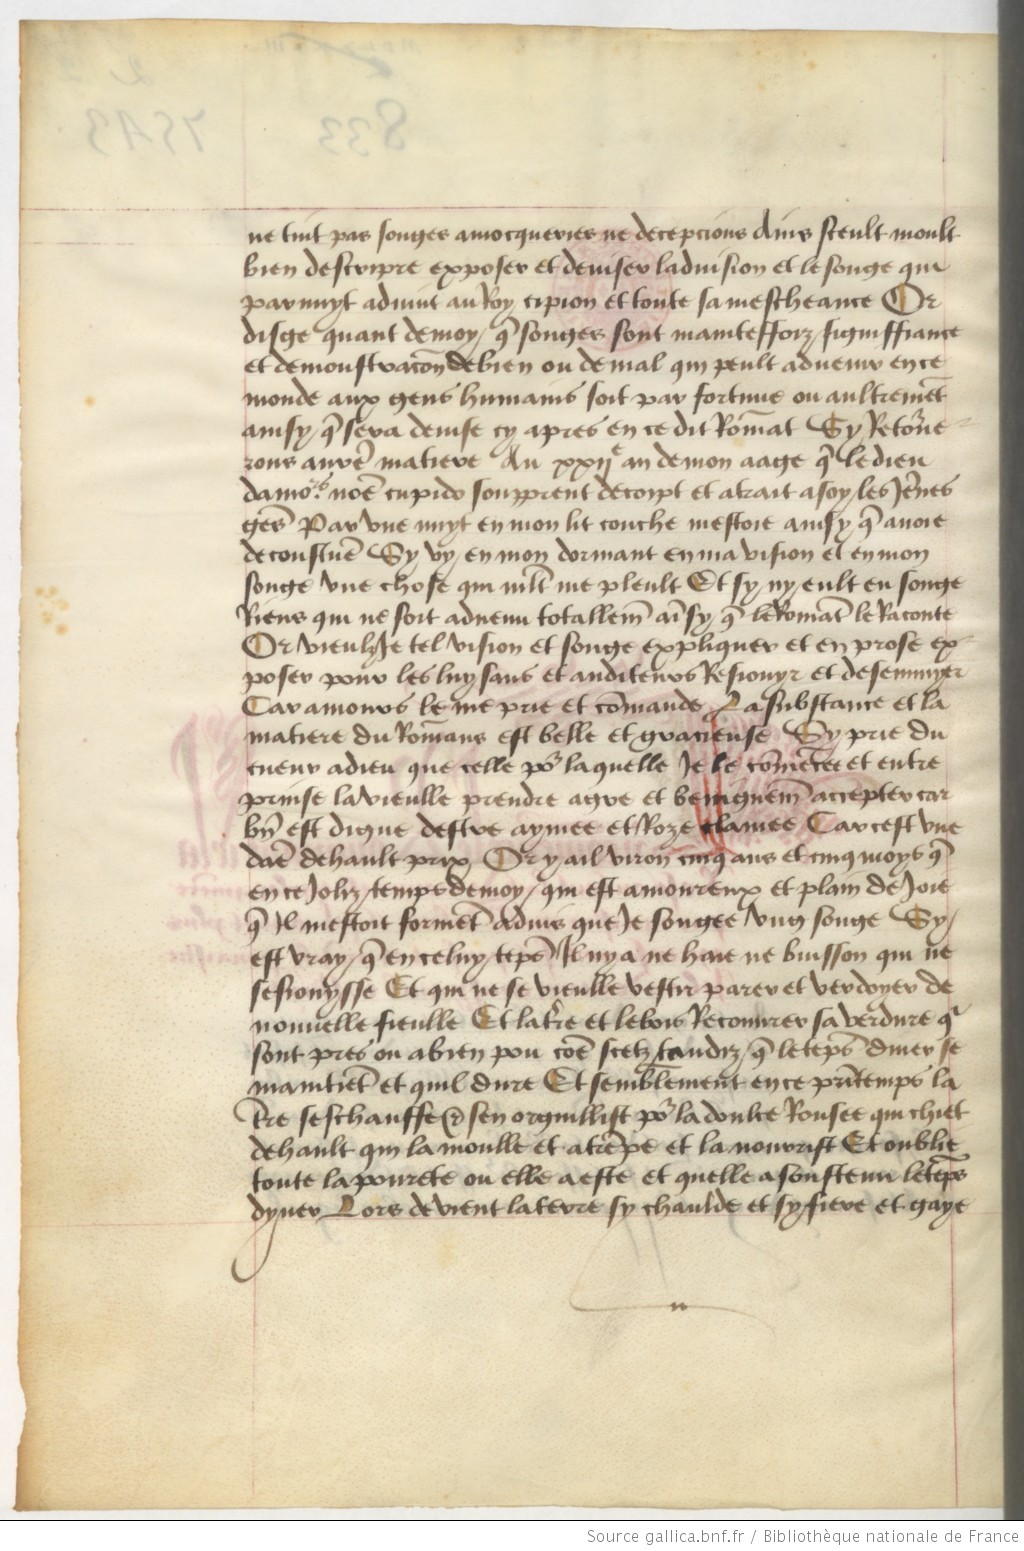 ne tint pas songes a mocqueries ne decepcions Ains sceult moult
bien descripre exposer et deviser ladvision et le songe qui
par nuyt advint au Roy cipion et toute sa mescheance Or
disge quant de moy / q̄ songes sont mainteffoiz / signiffiance
et demonstracōn de bien ou de mal qui peult advenir en ce
monde aux gens humains soit par fortune ou aultremēt
ainsy / q̄ sera devise cy apres en ce dit Rommāt Sy Retor̄ne
rons a nr̄e matiere Au xxijᵉ an de mon aage q̄ le dieu
damors noē cupido soupprent decoipt et atrait a soy / les Jēnes
gēs Par une nuyt en mon lit couche mestoie ainsy / q̄ avoie
de coustuē Sy vy / en mon dormant en ma vision et en mon
songe une chose qui mlt̄ me pleult Et sy / ny / eult en songe
Riens qui ne soit advenu totallemt̄ aīsy / q̄ le Romāt le Raconte
Or vieulz Je tel vision et songe expliquer et en prose ex-
poser pour les luysans et auditeurs Resiouyr et desennuyer
Car amours le me prie et cōmande La substance et la
matiere du Romāns est belle et gracieuse Sy prie du
cueur a dieu que celle por laquelle Je le cōmēcee et entre
prinse la vieulle prendre a gre et benignemt̄ accepter car
bn̄ est digne destre aymee et Roze clamee Car cest une
daē de hault prix Or y a il viron cinq ans et cinq moys q̄
en ce Joliz / temps de moy / qui est amoureux et plain de Joie
q̄ Il mestoit formēt advis que Je songee ung songe Sy /
est vray / q̄ en celuy / tēps Il ny a ne haie ne buisson qui ne
sesiouysse Et qui ne se vieulle vestir parer et verdoyer de
nouvelle fieulle Et la tr̄e et le bois Recouvrer sa verdure qi
sont pres ou a bien pou coē secz tandiz / q̄ le tēps diver se
maintiēt et quil dure Et semblement en ce prītemps la
tr̄e seschauffe & sen orguillist por la doulce Rousee qui chiet
de hault qui la moulle et atrēpe et la nourrist Et oublie
toute la pourete ou elle a este et quelle a soustenu le tēps
dyver Lors devient la terre sy chaulde et sy / fiere et gaye